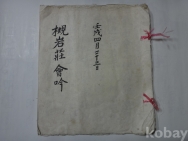 壬戌四月二十三日
槻岩莊會吟
kobay